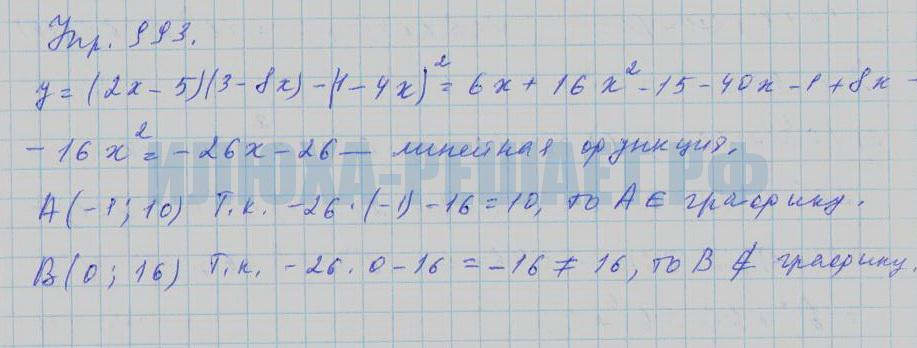 Упр. 993.
y = (2x - 5)(3 - 8x) - (1 - 4x)² = 6x + 16x² - 15 - 40x - 1 + 8x -
- 16x² = - 26x - 26 — линейная функция.
ИЛЮХА-РЕШАЕТ.РФ
A(-1; 10) Т.к. -26 · (-1) - 16 = 10, то A ∈ графику.
B(0; 16) Т.к. -26 · 0 - 16 = -16 ≠ 16, то B ∉ графику.